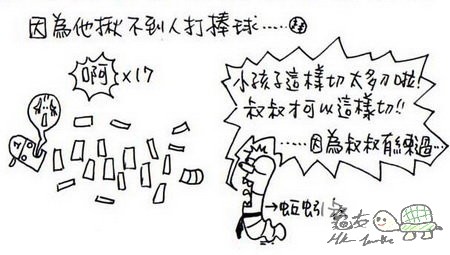 因為他揪不到人打棒球……
啊 x17
小孩子這樣切太多刀啦!
叔叔才可以這樣切!!
……因為叔叔有練過…
→蚯蚓